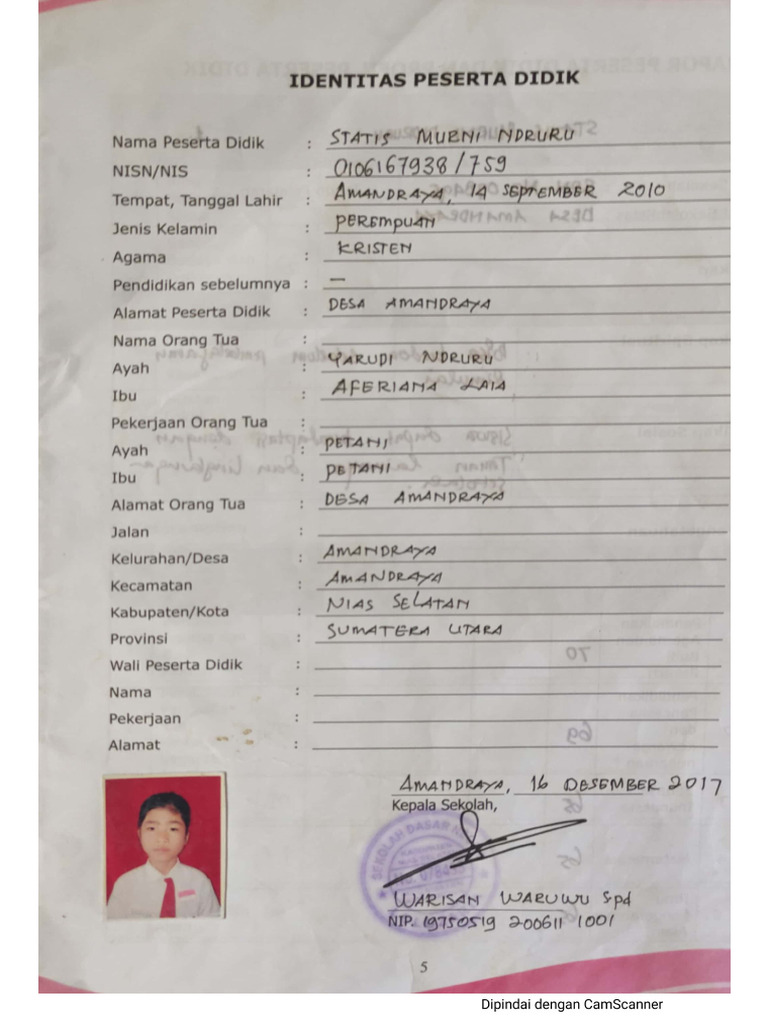 IDENTITAS PESERTA DIDIK
Nama Peserta Didik : STATIS MURNI NDRURU
NISN/NIS : 0106167938/759
Tempat, Tanggal Lahir : AMANDRAYA, 14 SEPTEMBER 2010
Jenis Kelamin : PEREMPUAN
Agama : KRISTEN
Pendidikan sebelumnya : —
Alamat Peserta Didik : DESA AMANDRAYA
Nama Orang Tua :
Ayah : YARUDI NDRURU
Ibu : AFERIANA LAIA
Pekerjaan Orang Tua :
Ayah : PETANI
Ibu : PETANI
Alamat Orang Tua : DESA AMANDRAYA
Jalan :
Kelurahan/Desa : AMANDRAYA
Kecamatan : AMANDRAYA
Kabupaten/Kota : NIAS SELATAN
Provinsi : SUMATERA UTARA
Wali Peserta Didik :
Nama :
Pekerjaan :
Alamat :
AMANDRAYA, 16 DESEMBER 2017
Kepala Sekolah,
SEKOLAH DASAR
WARISAN WARUWU Spd
NIP. 19750519 200611 1001
5
Dipindai dengan CamScanner